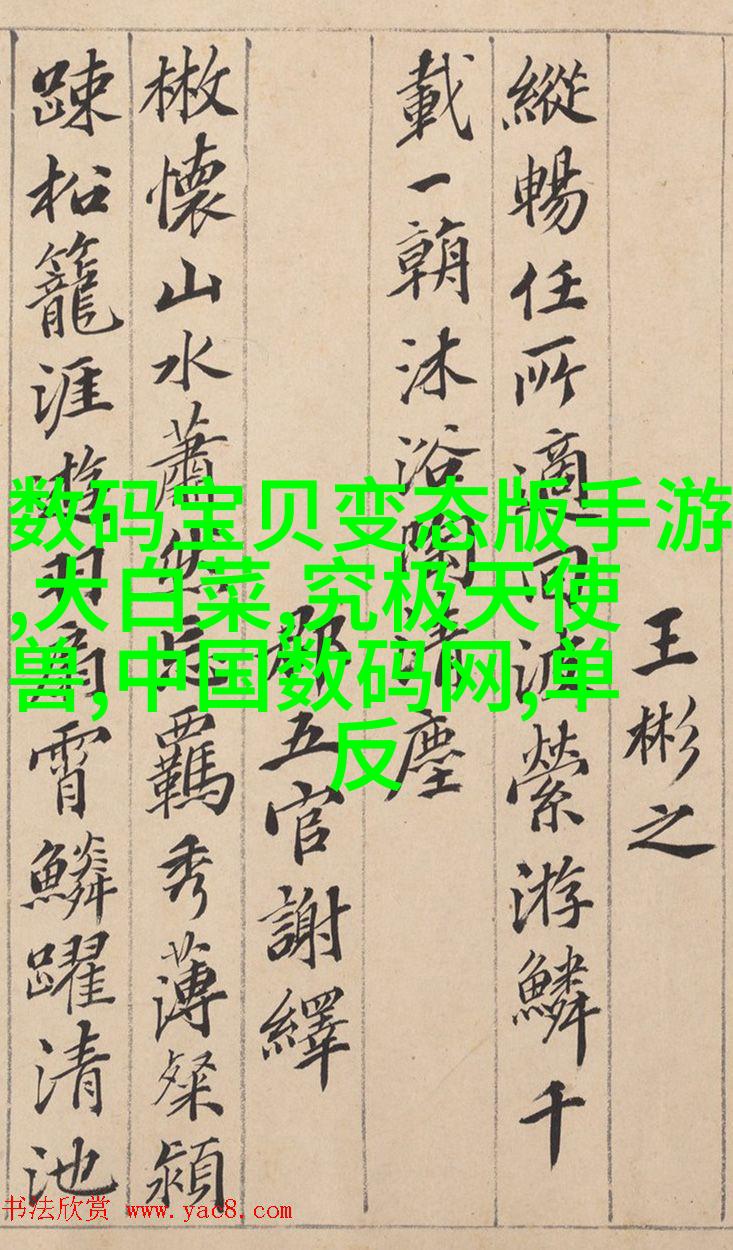 王彬之
縱暢任所適回波縈游鱗千
載一朝沐浴陶清塵
郡五官謝繹
散懷山水蕭然忘羈秀薄粲穎
踈松籠涯遊羽扇霄鱗躍清池
数码宝贝变态版手游
,大白菜,究极天使
兽,中国数码网,单
反
书法欣赏 www.yac8.com